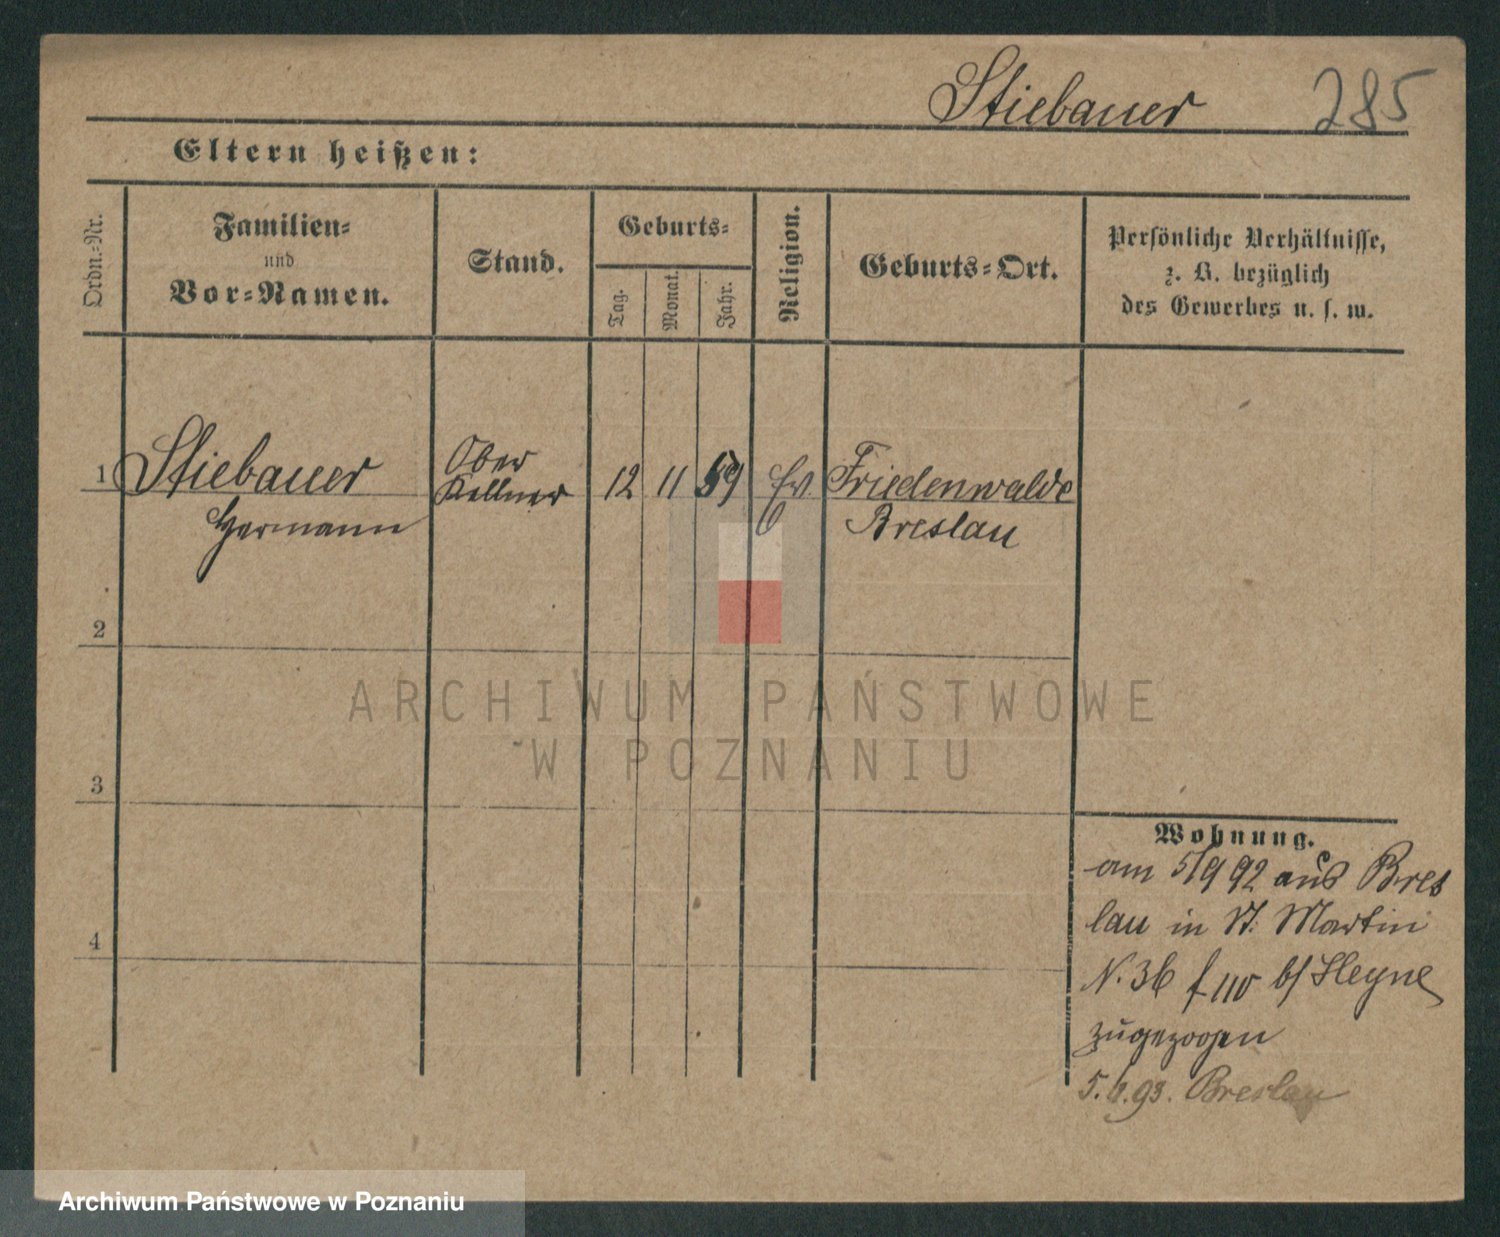 Stiebauer 285
Eltern heißen:
Ordn.-Nr.
Familien-
und
Vor-Namen.
Stand.
Geburts-
Tag.
Monat.
Jahr.
Religion.
Geburts-Ort.
Persönliche Verhältnisse,
z. B. bezüglich
des Gewerbes u. s. w.
1 Stiebauer Ober
Kellner 12 11 59 Ev. Friedenwalde
Hermann Breslau
2
3
4
ARCHIWUM PAŃSTWOWE
W POZNANIU
Wohnung.
am 5/9 92 aus Bres
lau in St. Martin
N. 36 b/ Heyne
zugezogen
5.6.93. Breslau
Archiwum Państwowe w Poznaniu